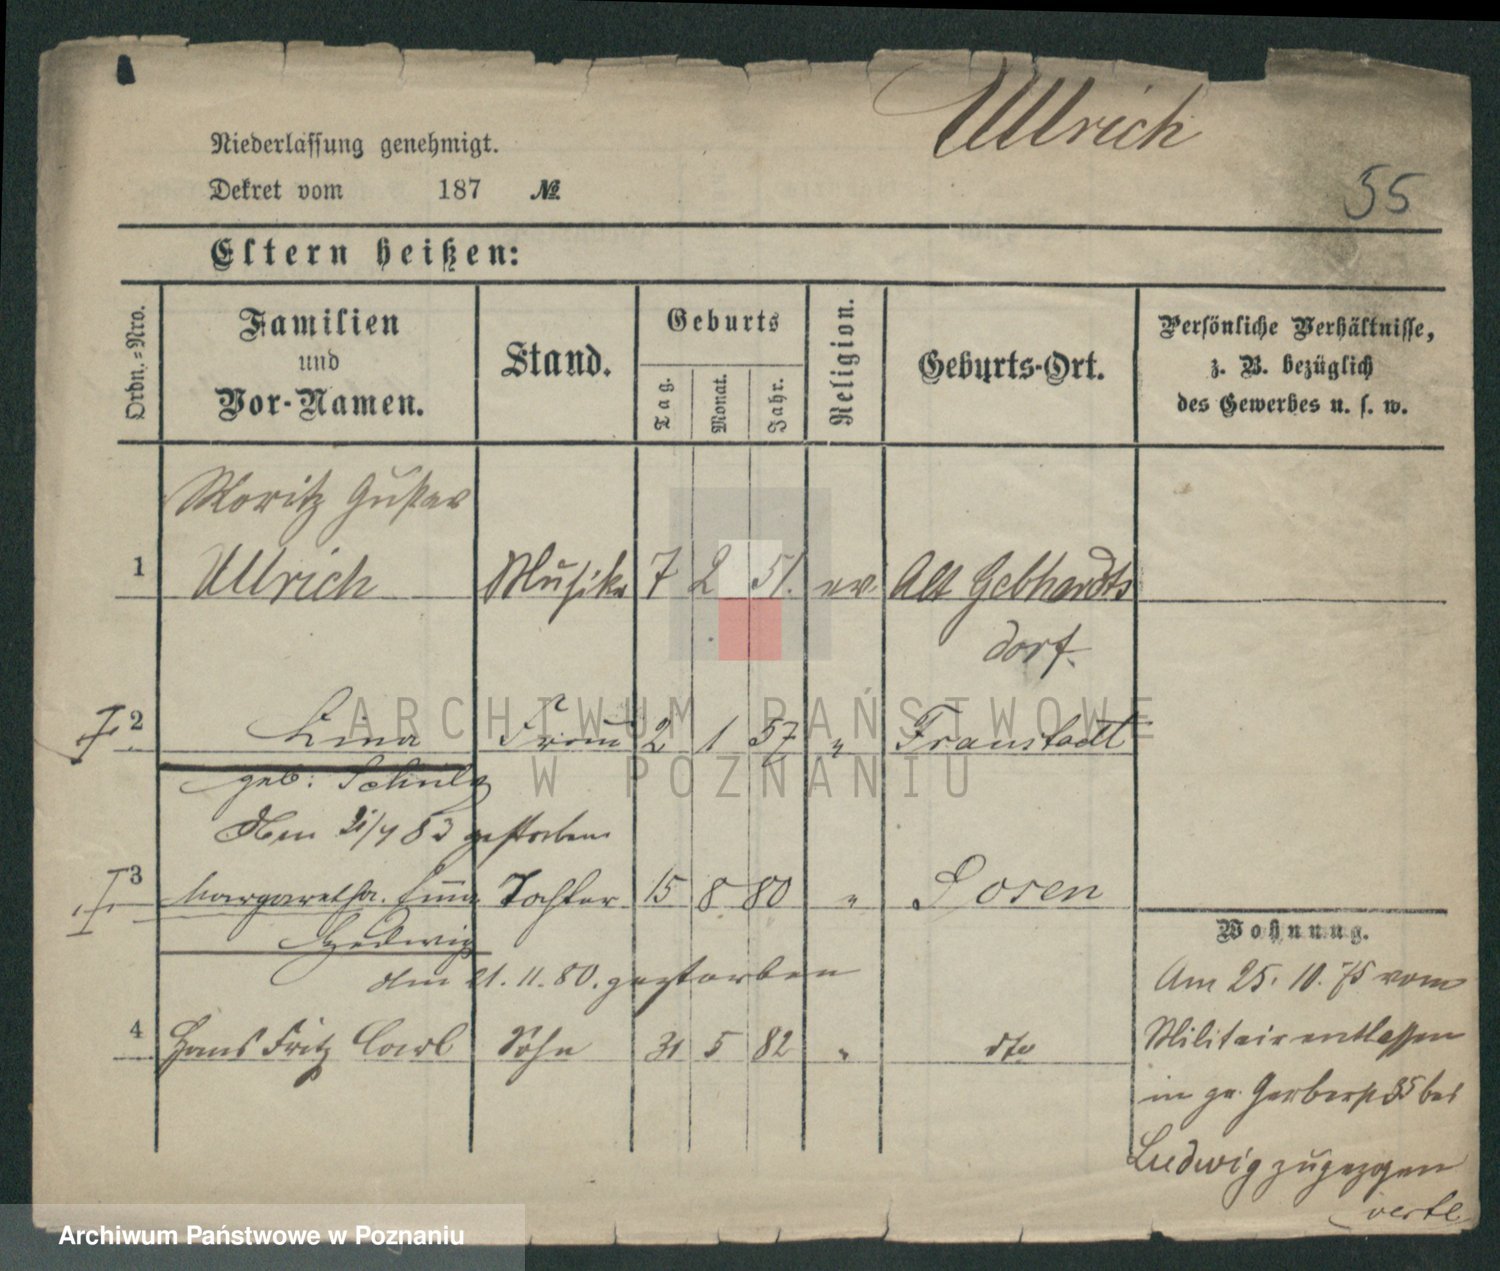 Ullrich
55
Niederlassung genehmigt.
Dekret vom 187 №
Eltern heißen:
Ordn.-Nro.
Familien
und
Vor-Namen.
Stand.
Geburts
Tag.
Monat.
Jahr.
Religion.
Geburts-Ort.
Persönliche Verhältnisse,
z. B. bezüglich
des Gewerbes u. s. w.
Moritz Gustav
1 Ullrich Musiker 7 2 51. ev. Alt Gebhards
dorf.
2 Lina Frau 2 1 57 " Fraustadt
geb: Schulz
Den /4 83 gestorben
3 Margaretha Tochter 15 8 80 " Posen
Hedwig
den 21. 11. 80. gestorben
4 Hans Fritz Carl Sohn 31 5 82 " dto
Wohnung.
Am 25. 10. 75 vom
Militair entlassen
in gr. Gerberstr 35 bei
Ludwig zugezogen
verte
ARCHIWUM PAŃSTWOWE
W POZNANIU
Archiwum Państwowe w Poznaniu